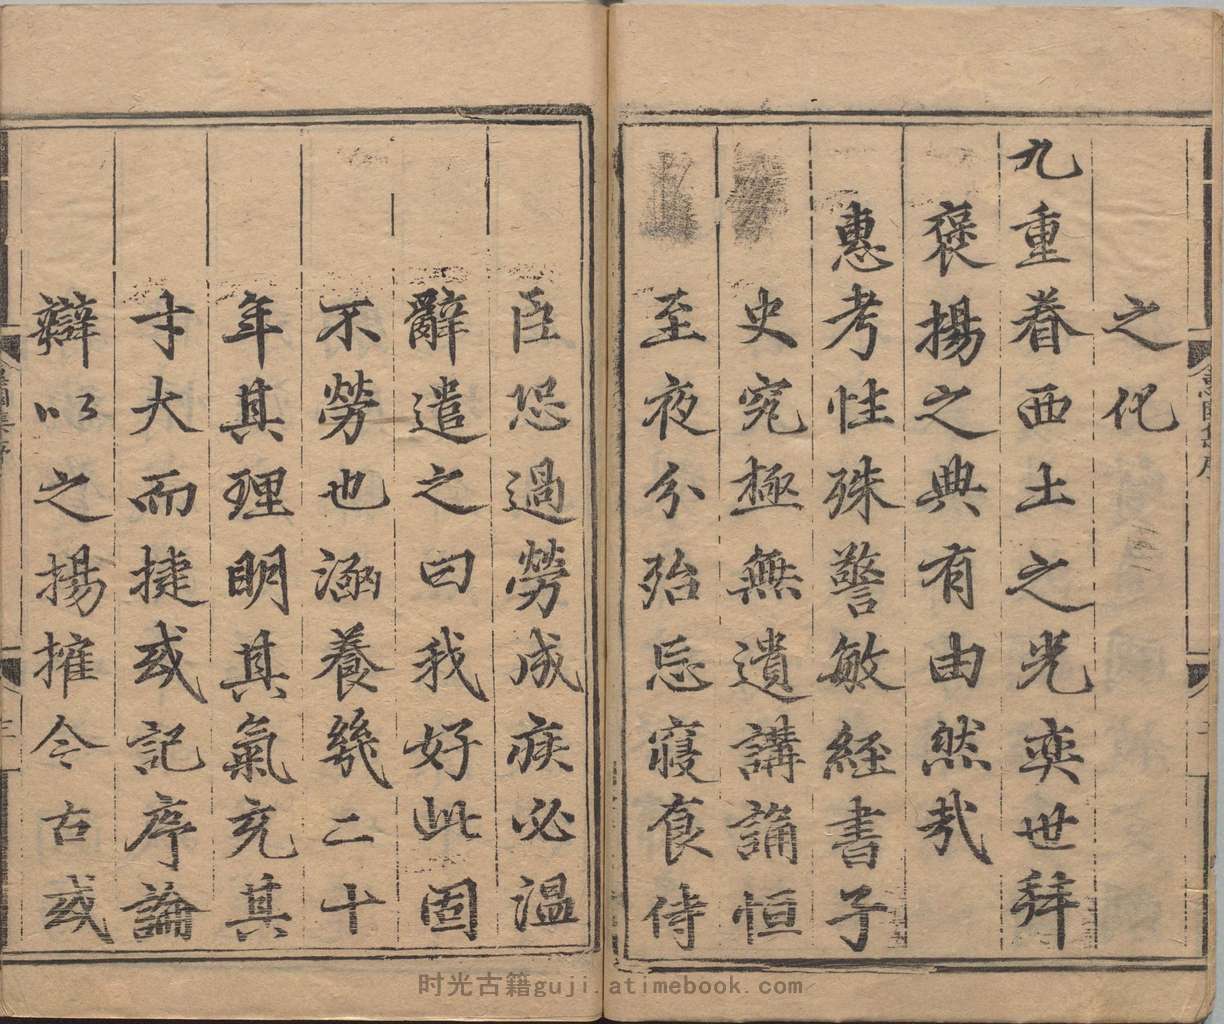 之化
九重眷西土之光奕世拜
褒揚之典有由然哉
惠考性殊警敏經書子
史究極無遺講誦恒
至夜分殆忘寢食侍
臣恐過勞成疾必溫
辭遣之曰我好此固
不勞也涵養幾二十
年其理明其氣充其
才大而捷或記序論
辯以之揚搉今古或
时光古籍guji.atimebook.com